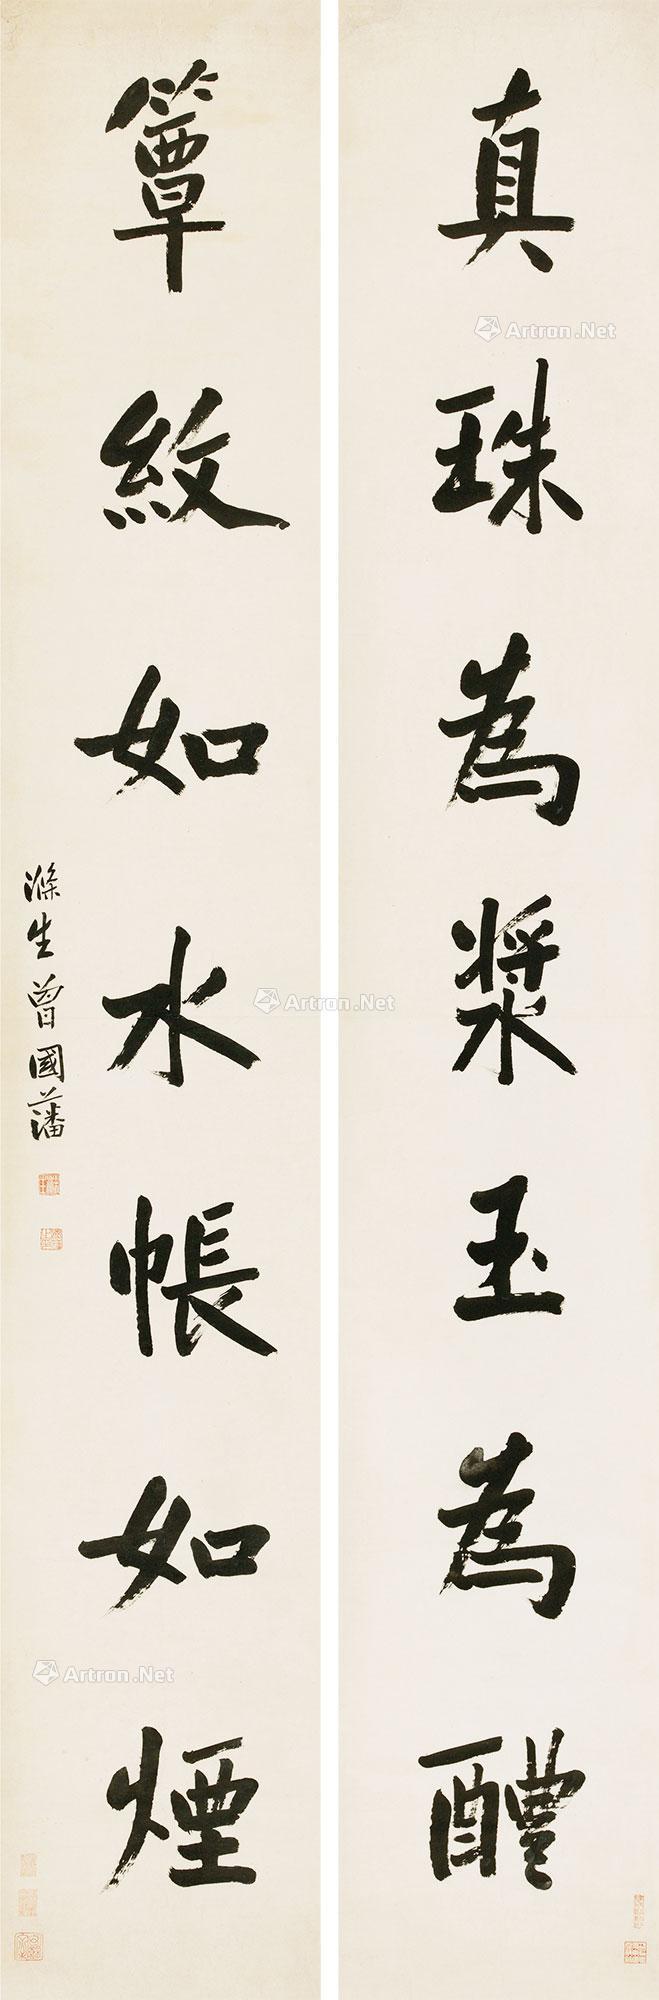 真珠為漿玉為醴
簟紋如水帳如煙
滌生曾國藩
Artron.Net
Artron.Net
Artron.Net